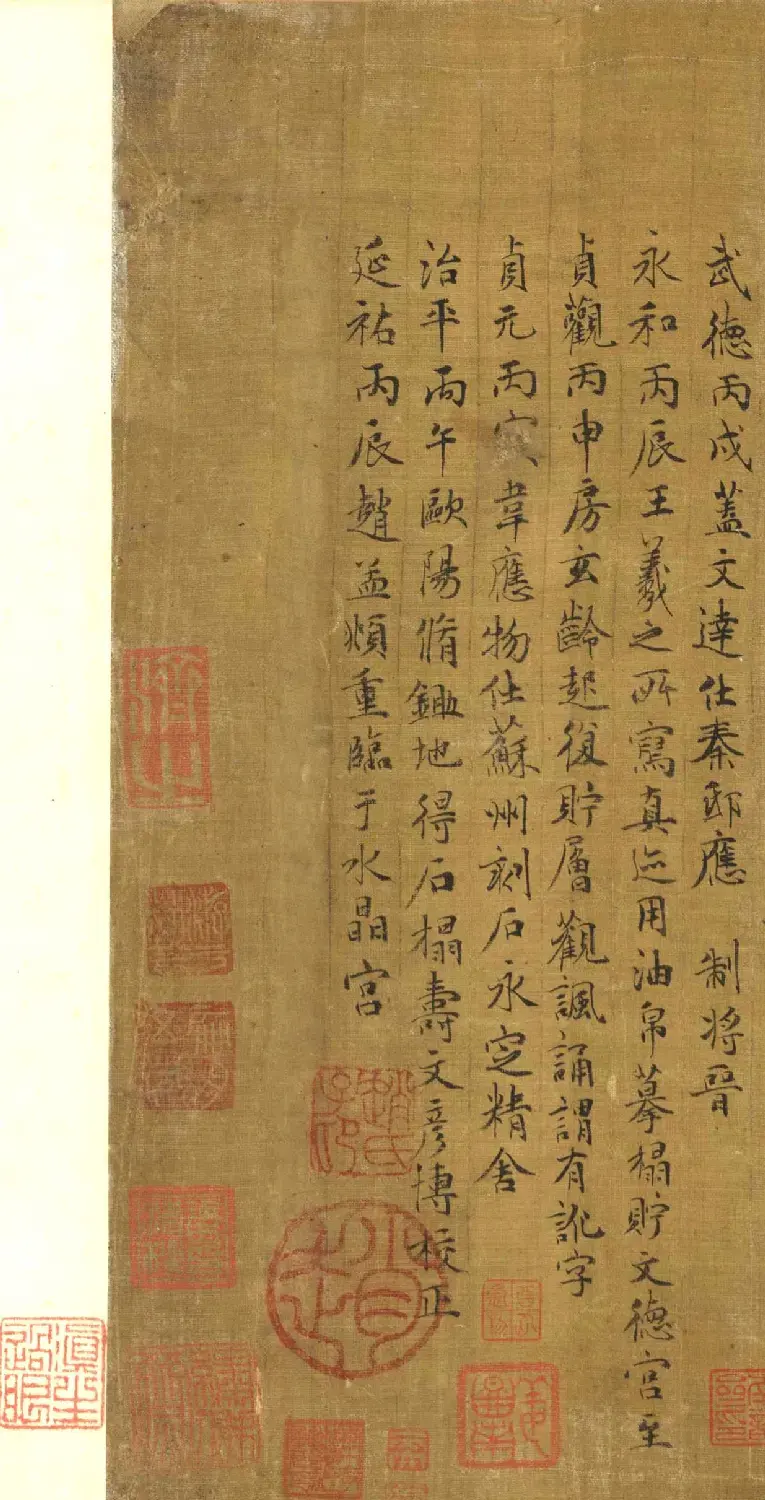 武德丙戌蓋文達仕秦邸應 制將晉
永和丙辰王羲之所寫真迹用油帛摹榻貯文德宮至
貞觀丙申房玄齡起復貯層觀諷誦謂有訛字
貞元丙寅韋應物仕蘇州刻石永定精舍
治平丙午歐陽脩鋤地得石榻壽文彥博校正
延祐丙辰趙孟頫重臨于水晶宮
趙氏子昂